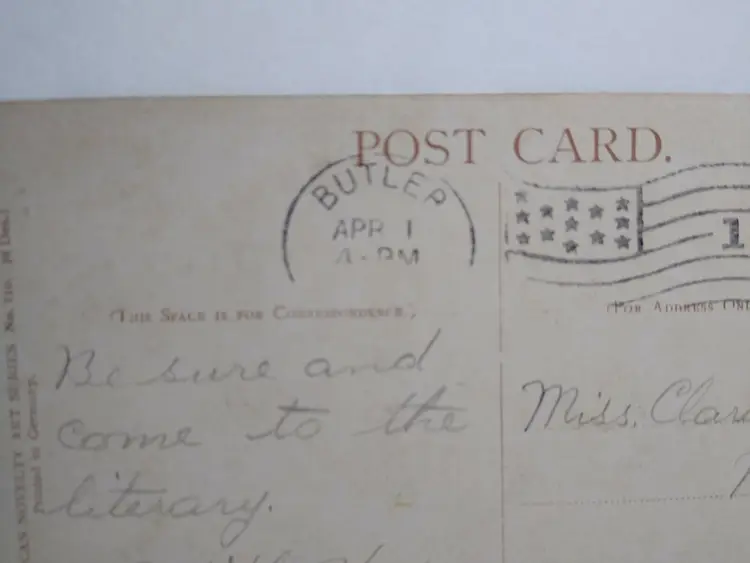 POST CARD.
BUTLER
APR 1
4 - PM
1
(THIS SPACE IS FOR CORRESPONDENCE.)
(FOR ADDRESS ONL
Be sure and
come to the
literary.
Miss. Clar
NOVELTY ART SERIES No. 710.
Printed in Germany.